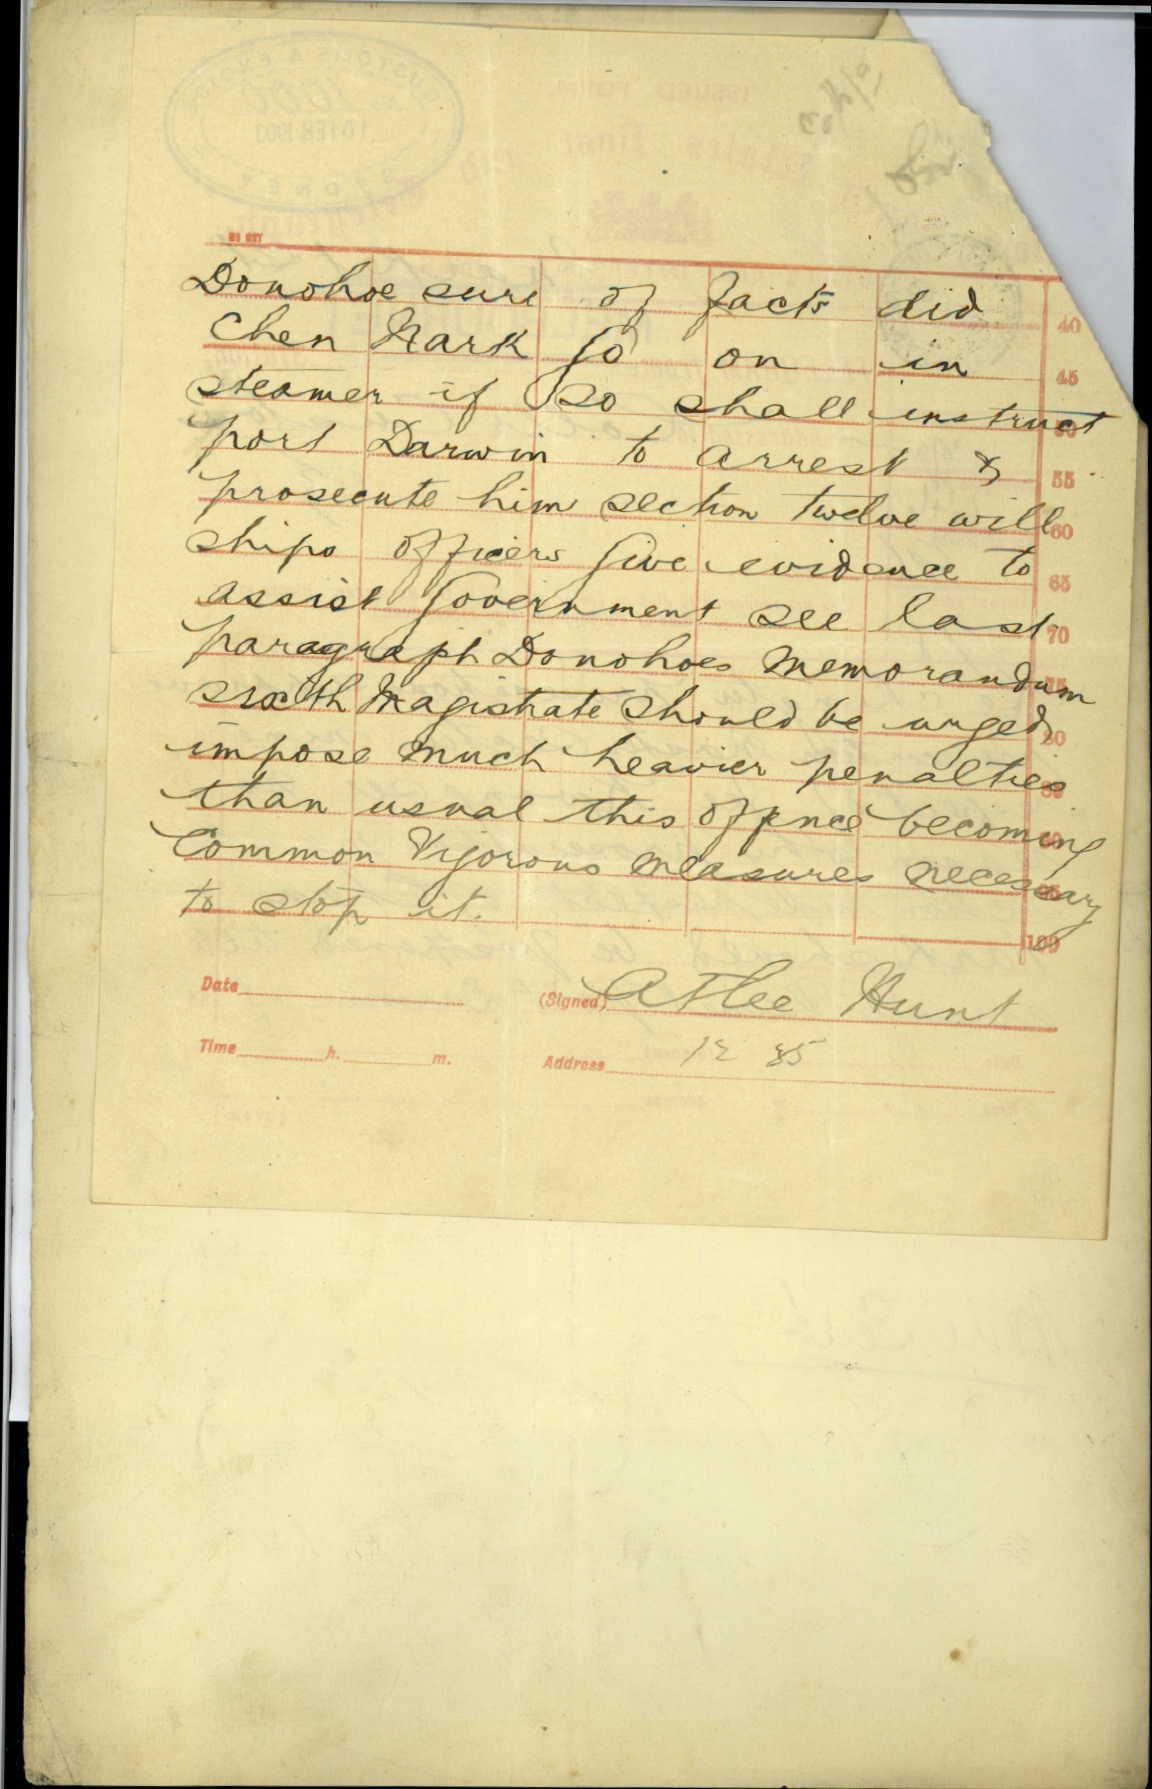 Donohoe sure of facts did 40
Chen Nark go on in 45
steamer if so shall instruct 50
port Darwin to arrest & 55
prosecute him section twelve will 60
ships officers give evidence to 65
assist Government see last 70
paragraph Donohoes memorandum
sixth Magistrate should be urged 80
impose much heavier penalties
than usual this offence becoming
Common Vigorous measures necessary
to stop it. 100
Date (Signed) Atlee Hunt
Time h. m. Address 12 35